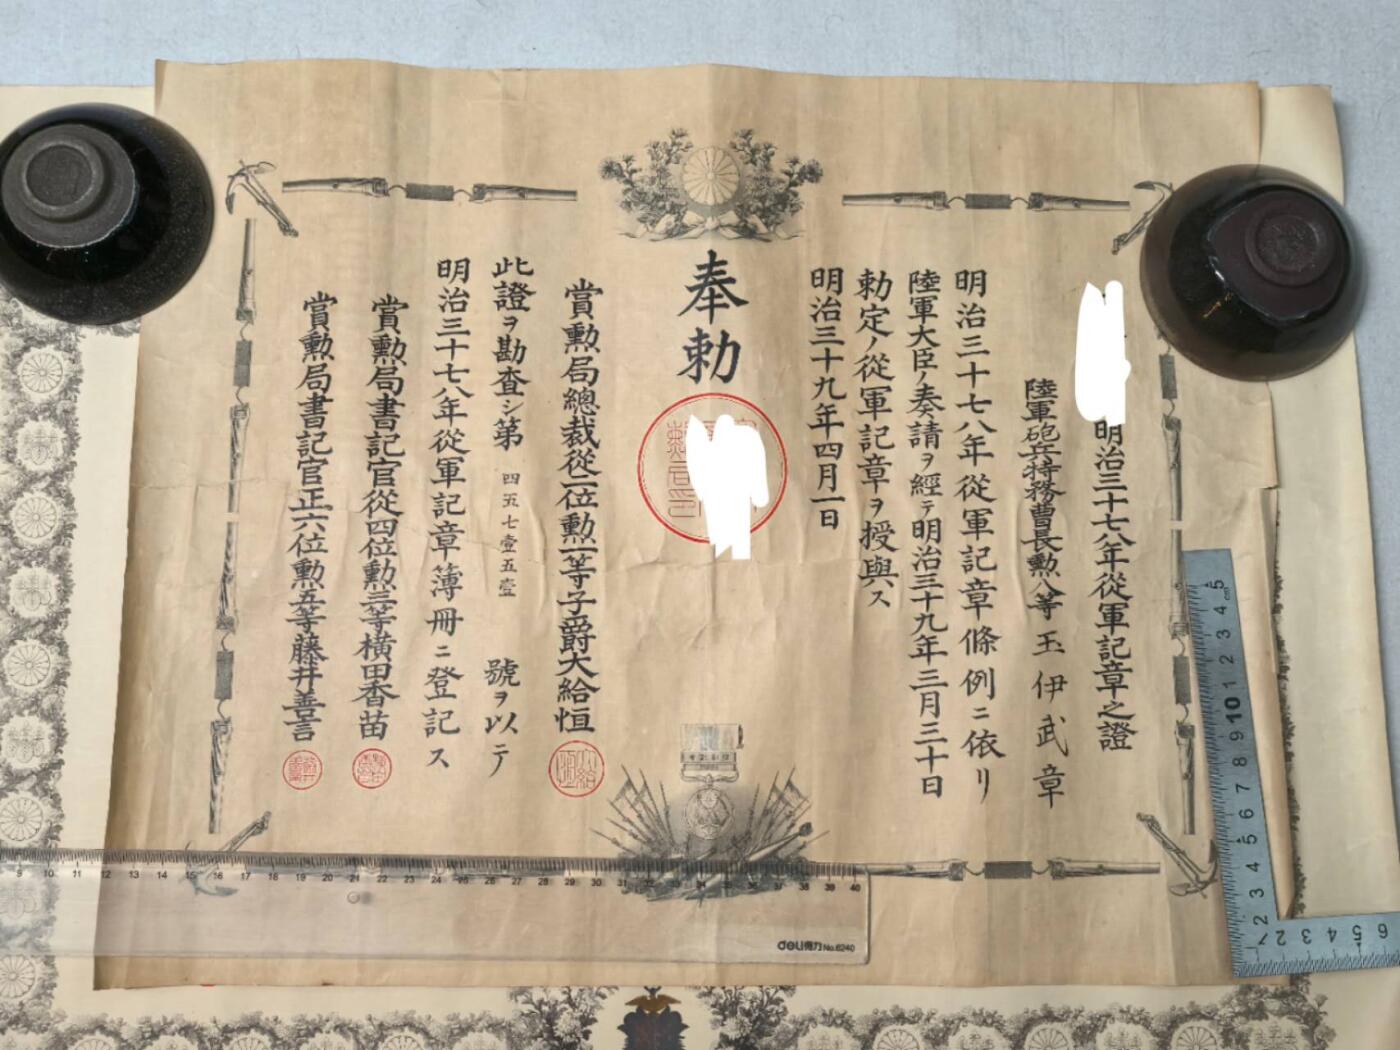 明治三十七八年從軍記章之證
陸軍砲兵特務曹長勲八等 玉伊武章
明治三十七八年從軍記章條例ニ依リ
陸軍大臣ノ奏請ヲ經テ明治三十九年三月三十日
勅定ノ從軍記章ヲ授與ス
明治三十九年四月一日
奉勅
賞勲局總裁從二位勲一等子爵大給恒
此證ヲ勘査シ第四五七壹五壹號ヲ以テ
明治三十七八年從軍記章簿冊ニ登記ス
賞勲局書記官從四位勲三等横田香苗
賞勲局書記官正六位勲五等藤井善言
deli得力 No.6240